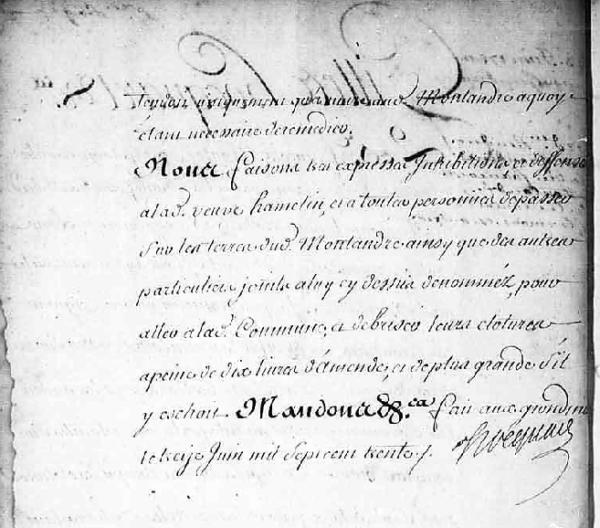 uniquement aud. Montandre aquoy
étant necessaire deremedier.
Nous faisons tres expresses Inhibitions et deffenses
alad. veuve hamelin, et a toutes personnes depasser
Sur les terres dud. Montandre ainsy que des autres
particuliers joints aluy cy dessus denommez, pour
aller alad. Commune, et debriser leurs clotures
apeine de dix livres d'amende, et de plus grande S'il
y eschoit. Mandons &.ca fait aux
le Juin mil Sept cent trente /.
hocquart